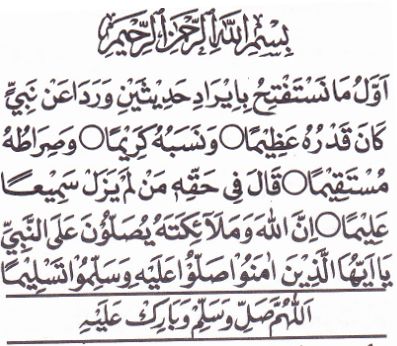 بِسْمِ اللهِ الرَّحْمٰنِ الرَّحِيْمِ
اَوَّلُ مَا نَسْتَفْتِحُ بِاِيْرَادِ حَدِيْثَيْنِ وَرَدَا عَنْ نَبِيٍّ
كَانَ قَدْرُهُ عَظِيْمًا ○ وَنَسَبُهُ كَرِيْمًا ○ وَصِرَاطُهُ
مُسْتَقِيْمًا ○ قَالَ فِى حَقِّهِ مَنْ لَمْ يَزَلْ سَمِيْعًا
عَلِيْمًا ○ اِنَّ اللهَ وَمَلَآئِكَتَهُ يُصَلُّوْنَ عَلَى النَّبِيِّ
يَااَيُّهَا الَّذِيْنَ اٰمَنُوْا صَلُّوْا عَلَيْهِ وَسَلِّمُوْا تَسْلِيْمًا
اَللّٰهُمَّ صَلِّ وَسَلِّمْ وَبَارِكْ عَلَيْهِ